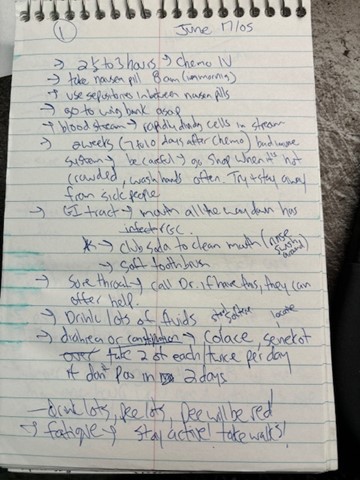 ① June 17/05
→ 2½ to 3 hours → Chemo IV
→ take nausea pill 8am (in morning)
→ use sepositories inbetween nausea pills
→ go to wig bank asap
→ blood stream → rapidly dividing cells in stream
→ 2 weeks (7 to 10 days after chemo) immune
system → be careful → go shop when it's not
crowded, wash hands often. Try + stay away
from sick people
→ GI tract → mouth all the way down has
infect
* → club soda to clean mouth (rinse swish around)
→ soft toothbrush
→ Sore throat → call Dr. if have this, they can
offer help.
→ Drink lots of fluids stool softener
→ diahrea or constipation → Colace, senekot
take 2 of each twice per day
if don't poo in 2 days
— drink lots, pee lots, pee will be red
→ fatigue → stay active! take walks!